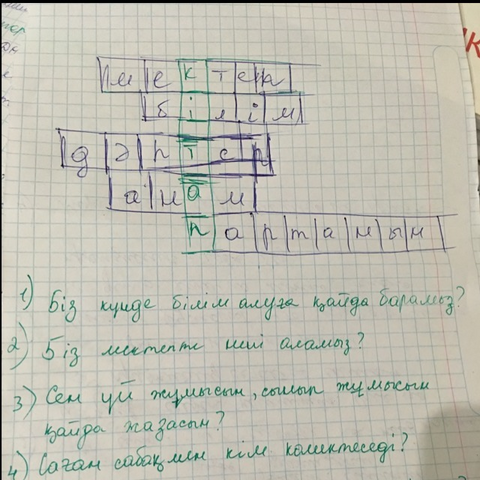 мектеп
білім
дәптер
анам
партаның
1) Біз күнде білім алуға қайда барамыз?
2) Біз мектепте нені аламыз?
3) Сен үй жұмысын, сынып жұмысын
қайда жазасын?
4) Саған сабақпен кім көмектеседі?